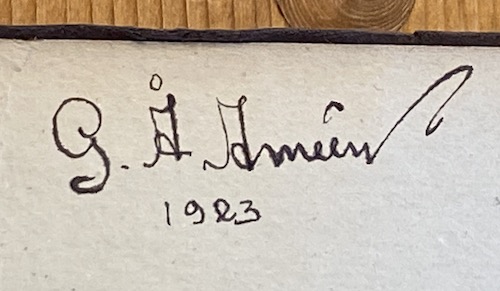 G. Å. Améen
1923